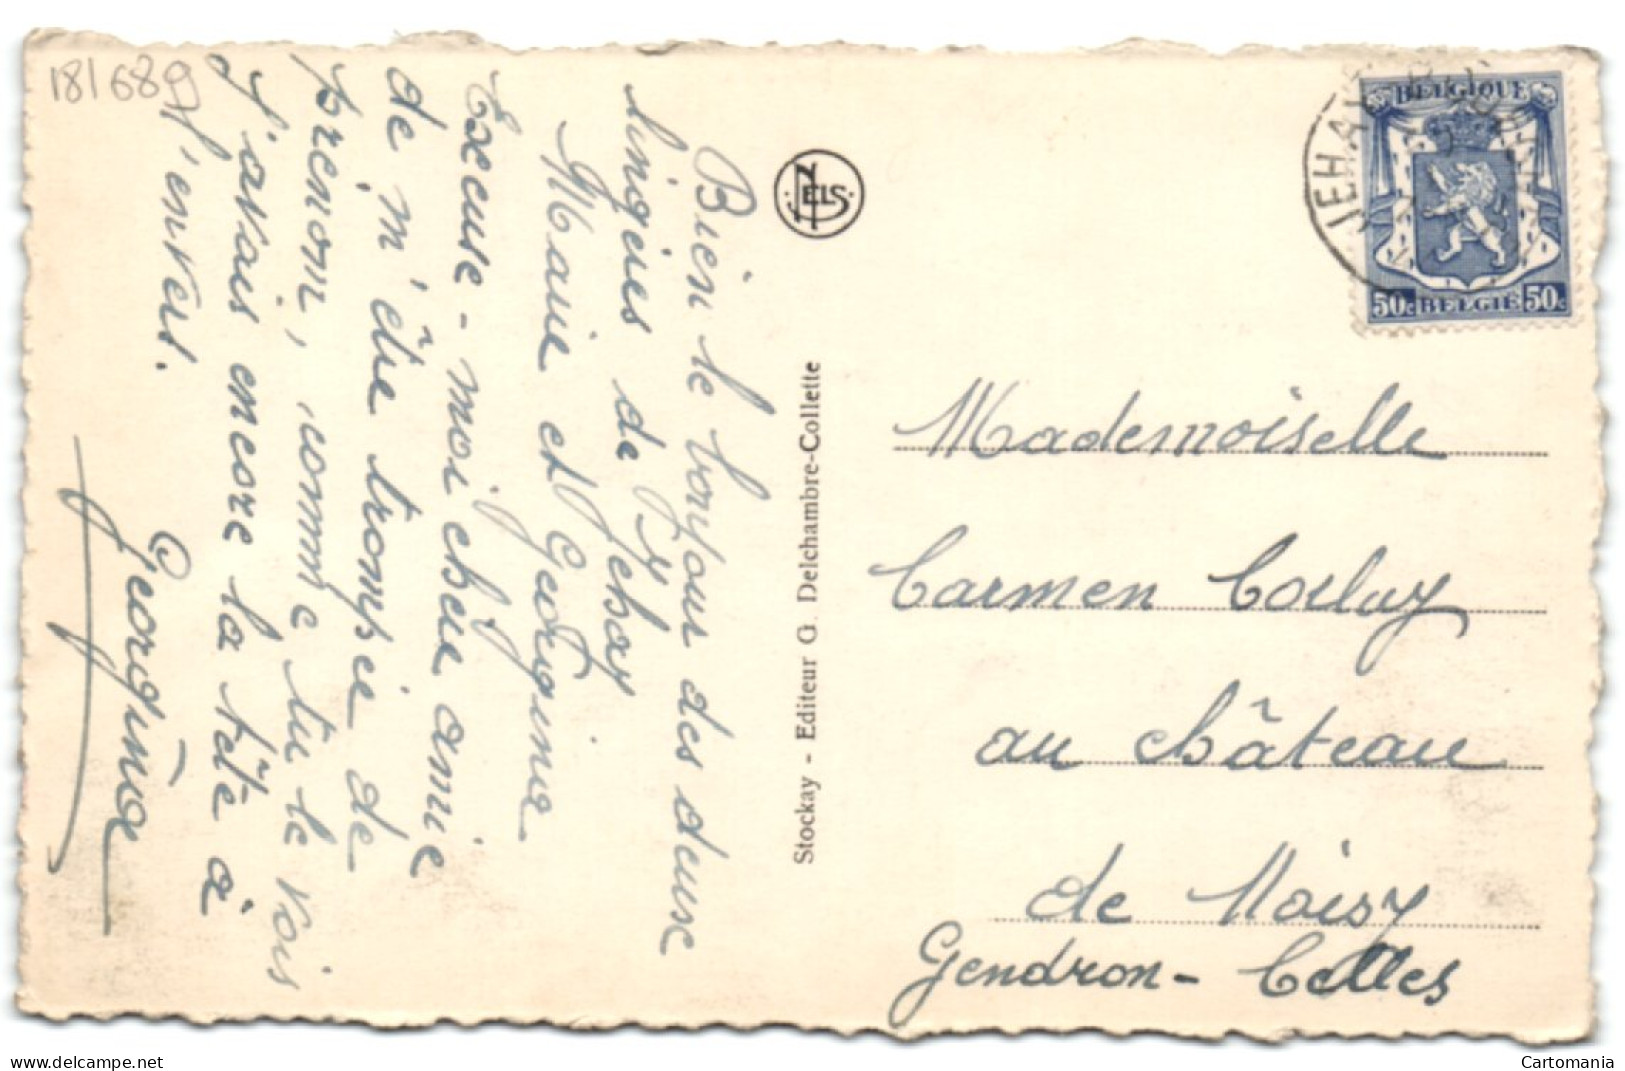 181689
Bien le bonjour des deux
lingères de Jehay
Marie et Georgina
Excuse-moi chère amie
de m'être trompée de
prénom, comme tu le vois
j'avais encore la tête à
l'envers.
Georgina
NELS
Stockay - Editeur G. Delchambre-Collette
JEHAY
BELGIQUE
50c BELGIË 50c
Mademoiselle
Carmen Corluy
au château
de Noisy
Gendron-Celles
Cartomania